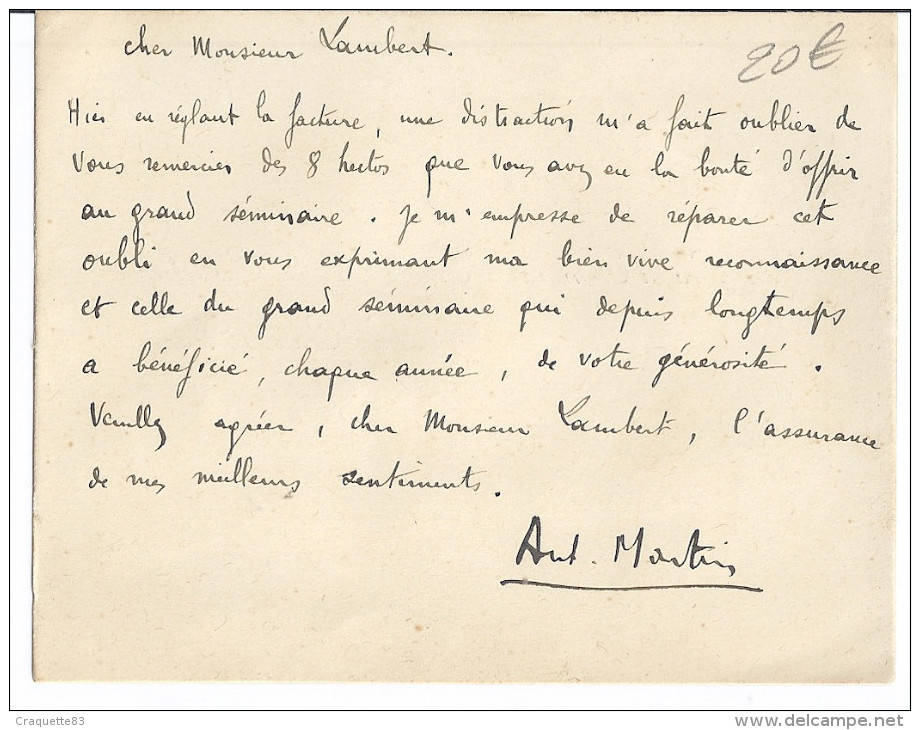 cher Monsieur Lambert.
20€
Hier en réglant la facture, une distraction m'a fait oublier de
vous remercier des 8 hectos que vous avez eu la bonté d'offrir
au grand séminaire. Je m'empresse de réparer cet
oubli en vous exprimant ma bien vive reconnaissance
et celle du grand séminaire qui depuis longtemps
a bénéficié, chaque année, de votre générosité.
Veuillez agréer, cher Monsieur Lambert, l'assurance
de mes meilleurs sentiments.
Ant. Martin
Craquette83
www.delcampe.net